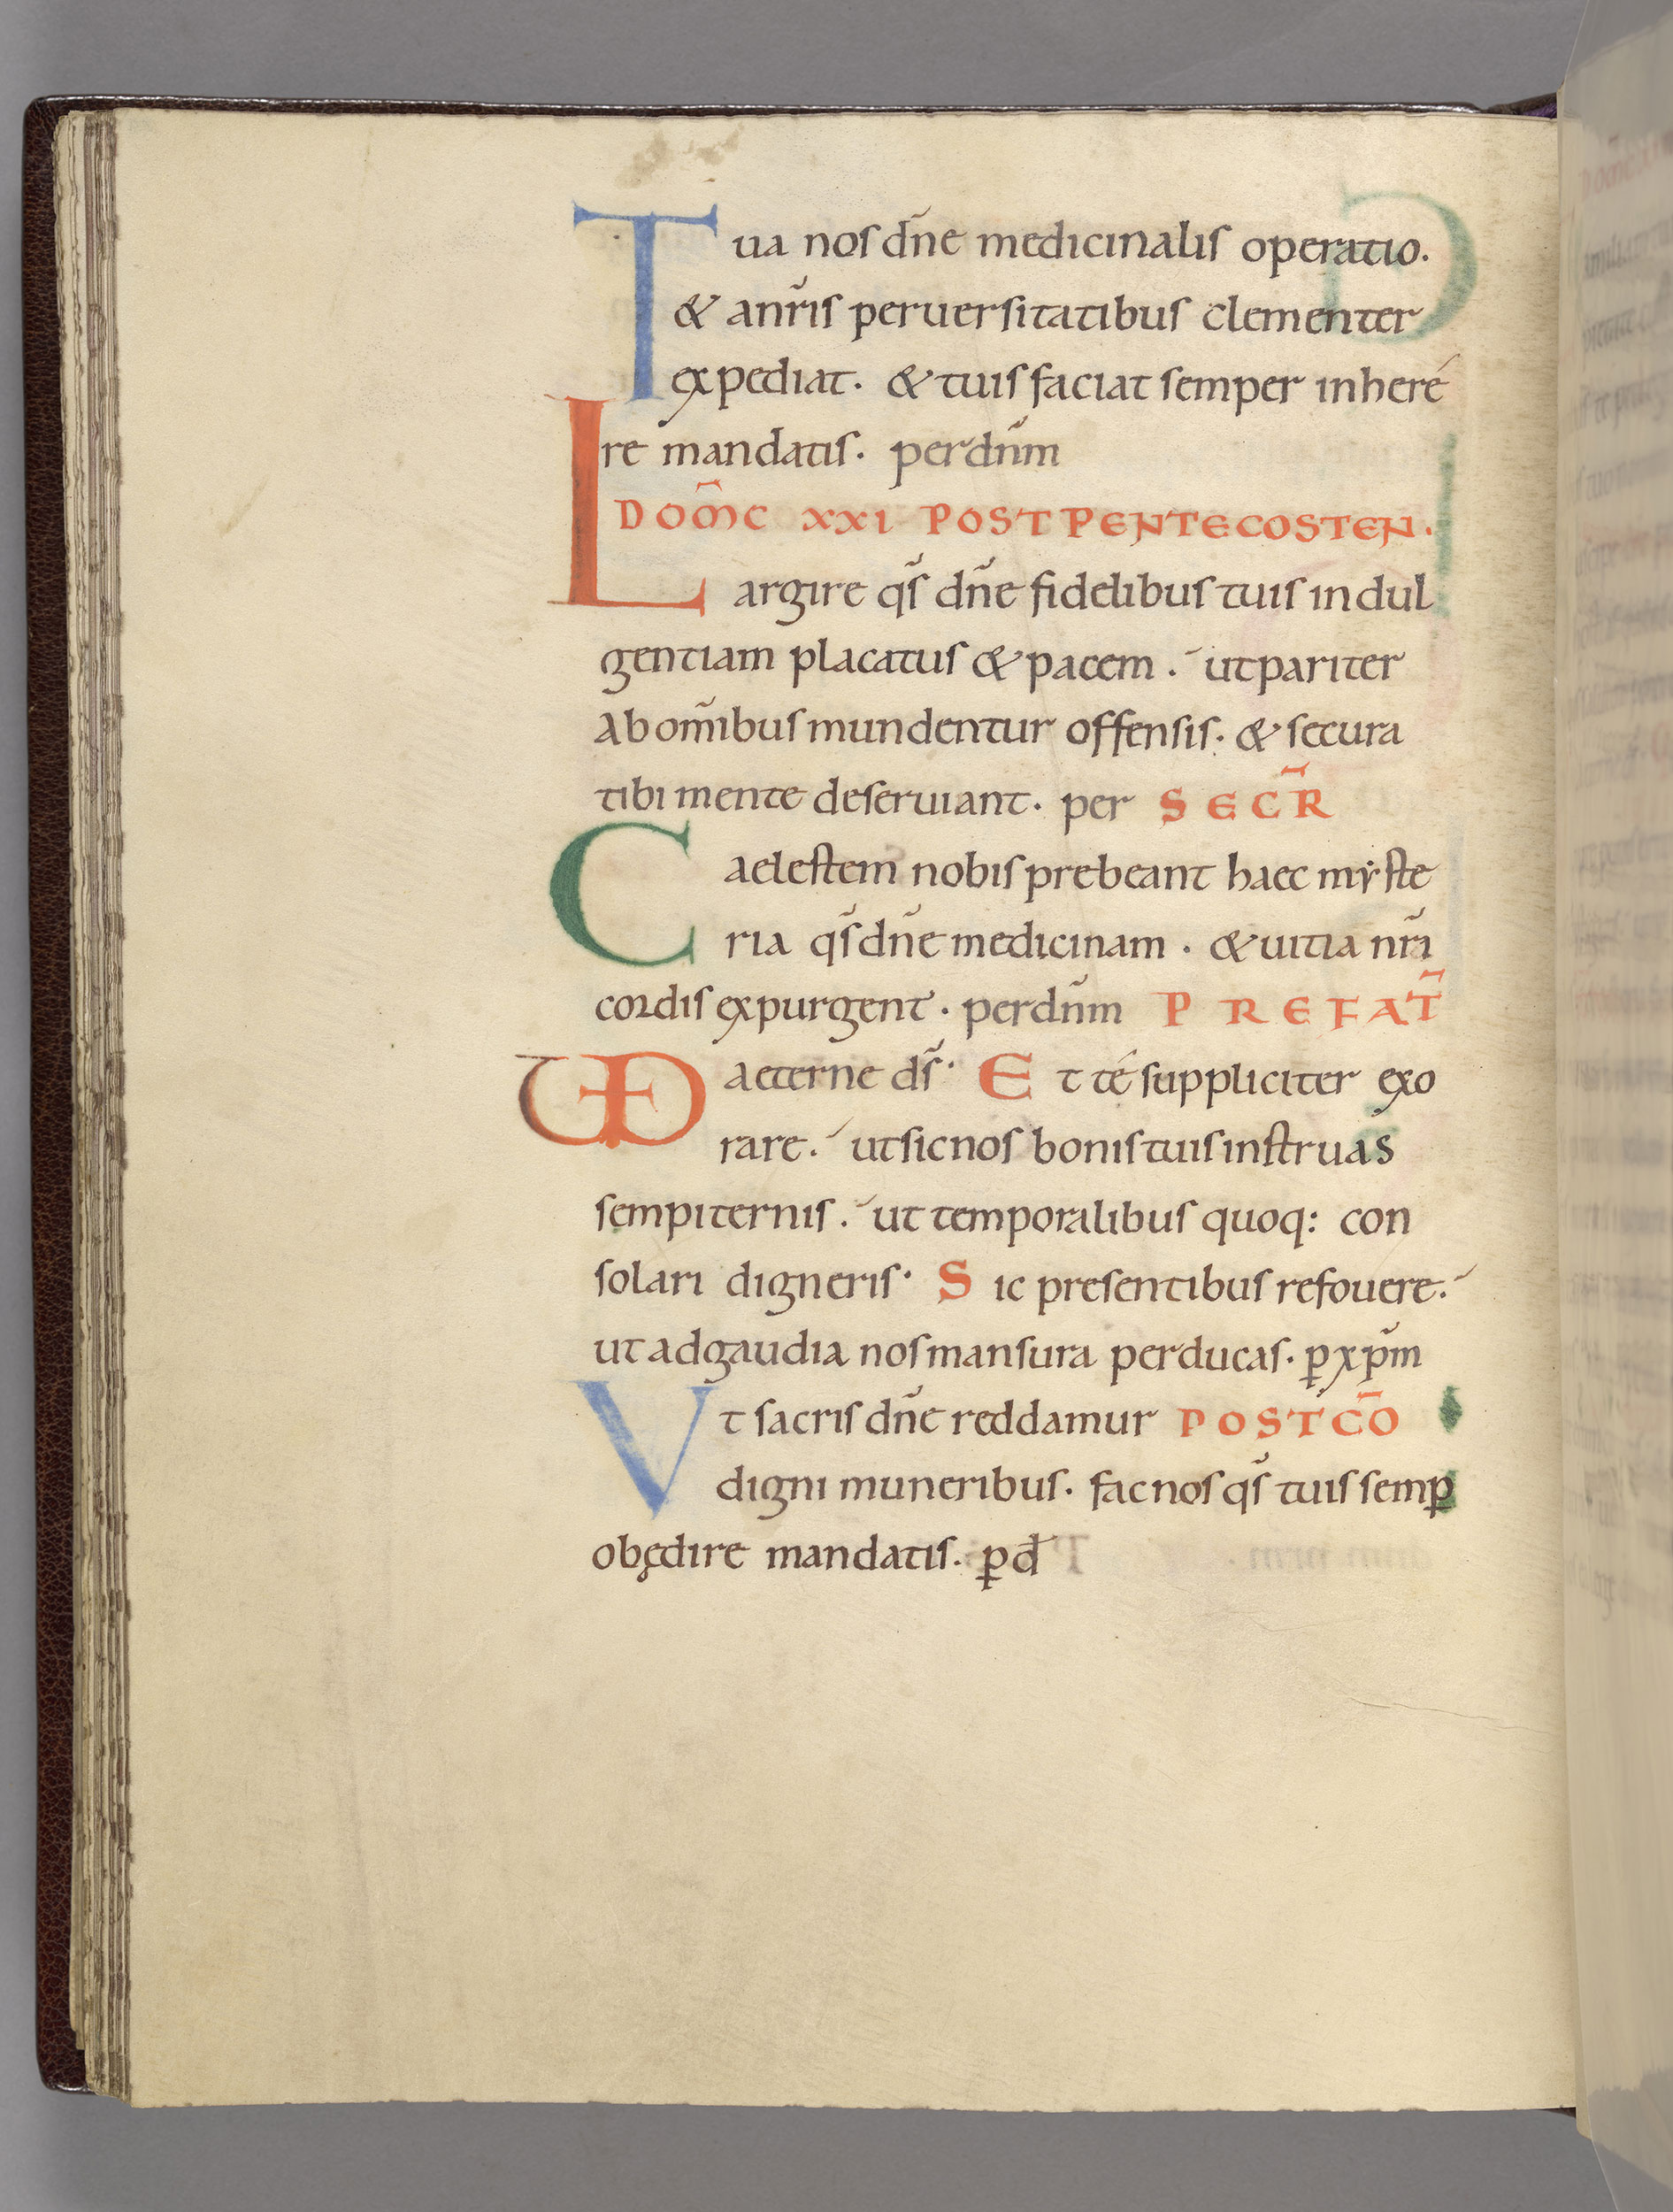 Tua nos dñe medicinalis operatio.
& anr̃is peruersitatibus clementer
expediat. & tuis faciat semper inheré
re mandatis. per dñm
DOM̃C XXI POST PENTECOSTEN.
Largire qs̃ dñe fidelibus tuis indul
gentiam placatus & pacem. ut pariter
Ab om̃ibus mundentur offensis. & secura
tibi mente deseruiant. per SECR̃
Caelestem nobis prebeant haec mẏste
ria qs̃ dñe medicinam. & uitia nr̃i
cordis expurgent. per dñm PREFAT̃
VD aeterne ds̃. Et té suppliciter exo
rare. ut sic nos bonis tuis instruas
sempiternis. ut temporalibus quoq: con
solari digneris. Sic presentibus refouere.
ut ad gaudia nos mansura perducas. ꝑ xp̃m
Vt sacris dñe reddamur POSTCÕ
digni muneribus. fac nos qs̃ tuis semꝑ
obędire mandatis. ꝑ đ